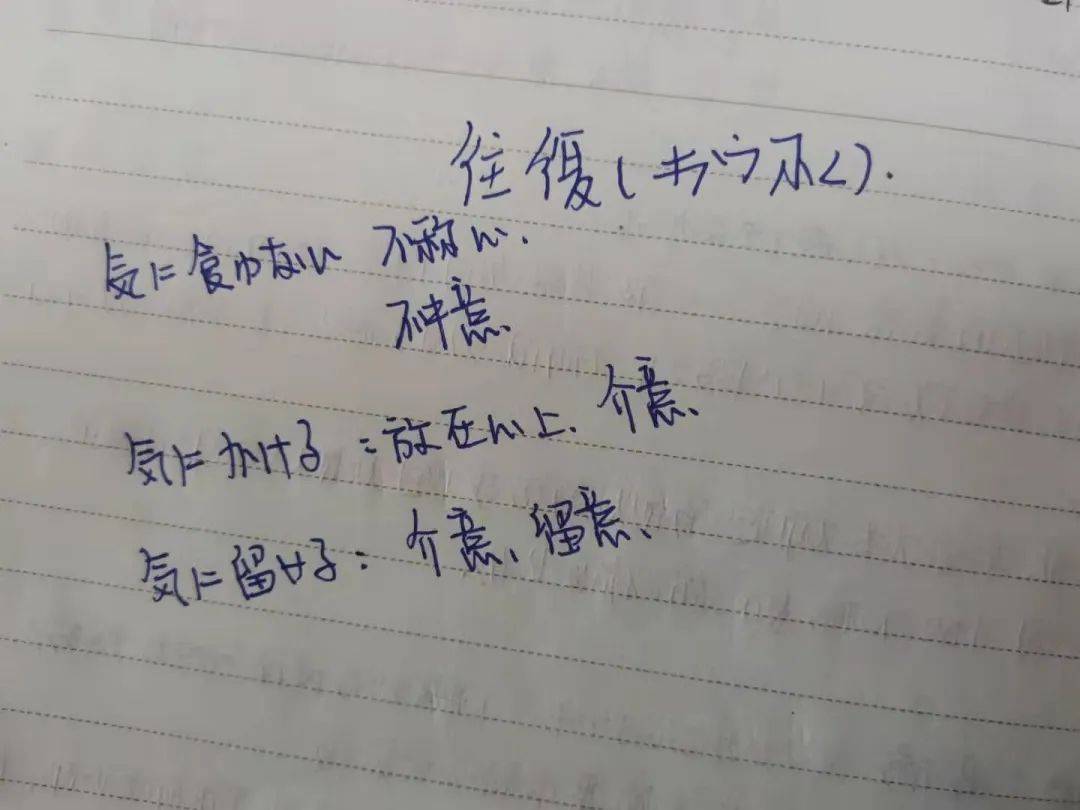 往復(おうふく).
気に食わない 不称心.
不中意、
気にかける:放在心上、介意、
気に留める:介意、留意、